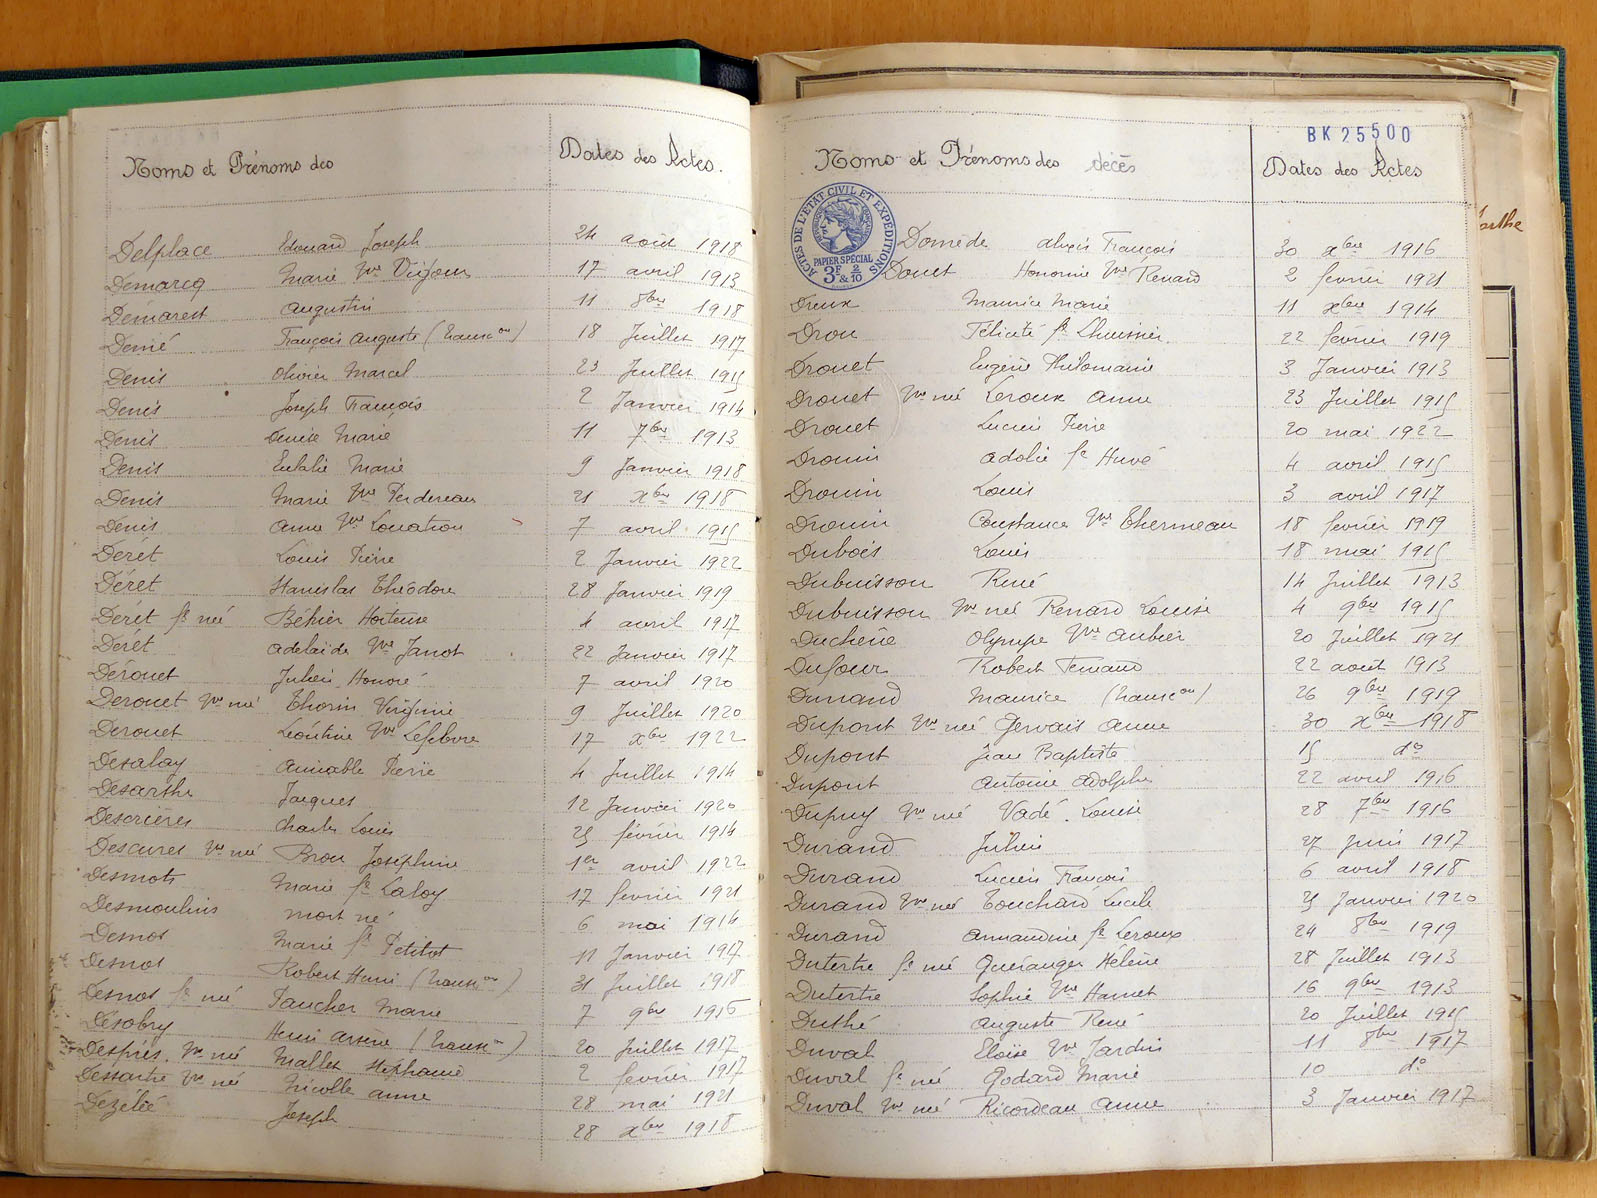 Noms et Prénoms des Dates des Actes.
Delplace Edouard Joseph 24 août 1918
Demarcq Marie Vve 17 avril 1913
Demarest Augustin 11 8bre 1918
Denié François Auguste (transcon) 18 Juillet 1917
Denis Olivier Marcel 23 Juillet 1915
Denis Joseph François 2 Janvier 1914
Denis Denise Marie 11 7bre 1913
Denis Eulalie Marie 9 Janvier 1918
Denis Marie Vve Perdereau 21 xbre 1918
Denis Anne Vve 7 avril 1915
Deret Louis Pierre 2 Janvier 1922
Déret Stanislas Théodore 28 Janvier 1919
Deret fe née Béhier Hortense 4 avril 1917
Derét Adelaïde Vve Janot 22 Janvier 1917
Dérouet Julien Honoré 7 avril 1920
Derouet Vve née Thorin Virginie 9 Juillet 1920
Derouet Léontine Vve Lefebvre 17 xbre 1922
Desalay Aimable Pierre 4 Juillet 1914
Desarthe Jacques 12 Janvier 1920
Descrières Charles Louis 25 février 1914
Descures Vve née Brou Joséphine 1er avril 1922
Desmots Marie fe Laloy 17 février 1921
Desmoulins mort né 6 mai 1914
Desnos Marie fe Petitot 11 Janvier 1917
Desnos Robert Henri (transcon) 31 Juillet 1918
Desnos fe née Faucher Marie 7 9bre 1916
Désobry Henri Arsène (transcon) 20 Juillet 1917
Desprès Vve née Mallet Stéphanie 2 février 1917
Dessartre Vve née Nicolle Anne 28 mai 1921
Dezélée Joseph 28 xbre 1918
BK 25500
Noms et Prénoms des décès Dates des Actes
ACTES DE L'ETAT CIVIL ET EXPÉDITIONS
PAPIER SPÉCIAL
3F & 2/10
Domède Alexis François 30 xbre 1916
Douet Honorine Vve Renard 2 février 1921
Dreux Maurice Marie 11 xbre 1914
Drou Félicité fe 22 février 1919
Drouet Eugénie Philomaine 3 Janvier 1913
Drouet Vve née Leroux Anne 23 Juillet 1915
Drouet Lucien Pierre 20 mai 1922
Drouin Adolie fe Huvé 4 avril 1915
Drouin Louis 3 avril 1917
Drouin Constance Vve Thermeau 18 février 1919
Dubois Louis 18 mai 1915
Dubuisson René 14 Juillet 1913
Dubuisson Vve née Renard Louise 4 9bre 1915
Duchêne Olympe Vve Aubier 20 Juillet 1921
Dufour Robert Fernand 22 août 1913
Dunand Maurice (transcon) 26 9bre 1919
Dupont Vve née Gervais Anne 30 xbre 1918
Dupont Jean Baptiste 15 do
Dupont Antoine Adolphe 22 avril 1916
Dupuy Vve née Vadé Louise 28 7bre 1916
Durand Julien 27 juin 1917
Durand Lucien François 6 avril 1918
Durand Vve née Touchard Lucile 25 Janvier 1920
Durand Armandine fe Leroux 24 8bre 1919
Dutertre fe née Quéranger Hélène 28 Juillet 1913
Dutertre Sophie Vve Hamet 16 9bre 1913
Duthé Auguste René 20 Juillet 1915
Duval Eloïse Vve Jardin 11 8bre 1917
Duval fe née Godard Marie 10 do
Duval Vve née Ricordeau Anne 3 Janvier 1917